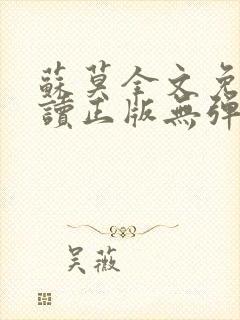 蘇莫全文免
讀正版無彈
吴薇